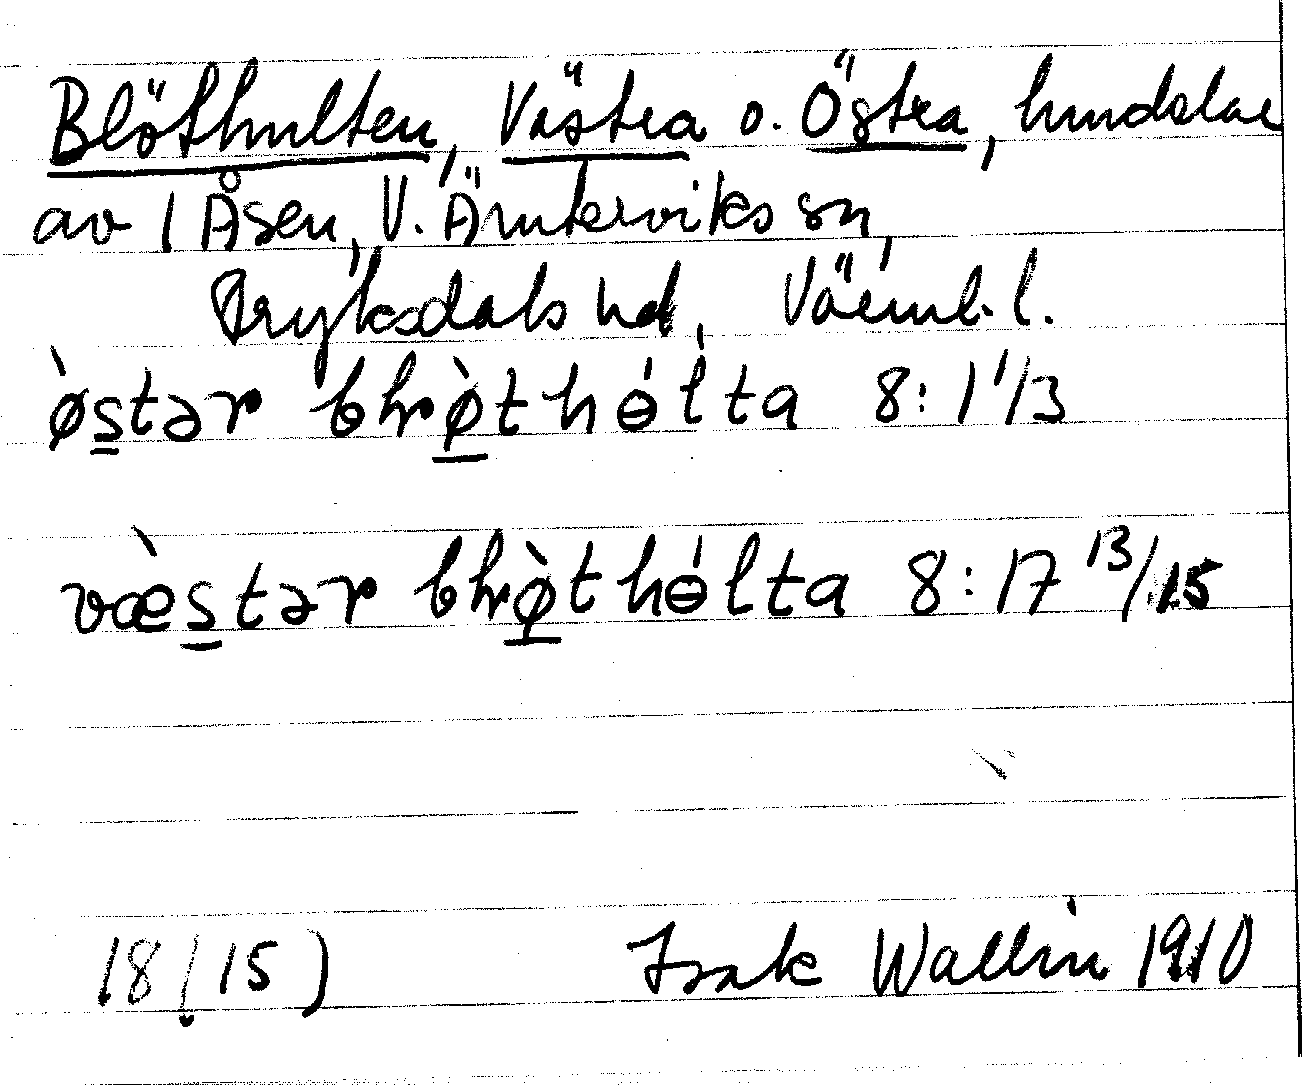 Blöthulten, Västra o. Östra, hemdelar
av 1 Åsen, V. Ämterviks sn,
Fryksdals hd, Värml. l.
ø̀stər bɽø̀thɵ́lta 8:1 1/3
væ̀stər bɽø̀thɵ́lta 8:17 13/15
18/15)
Isak Wallin 1910